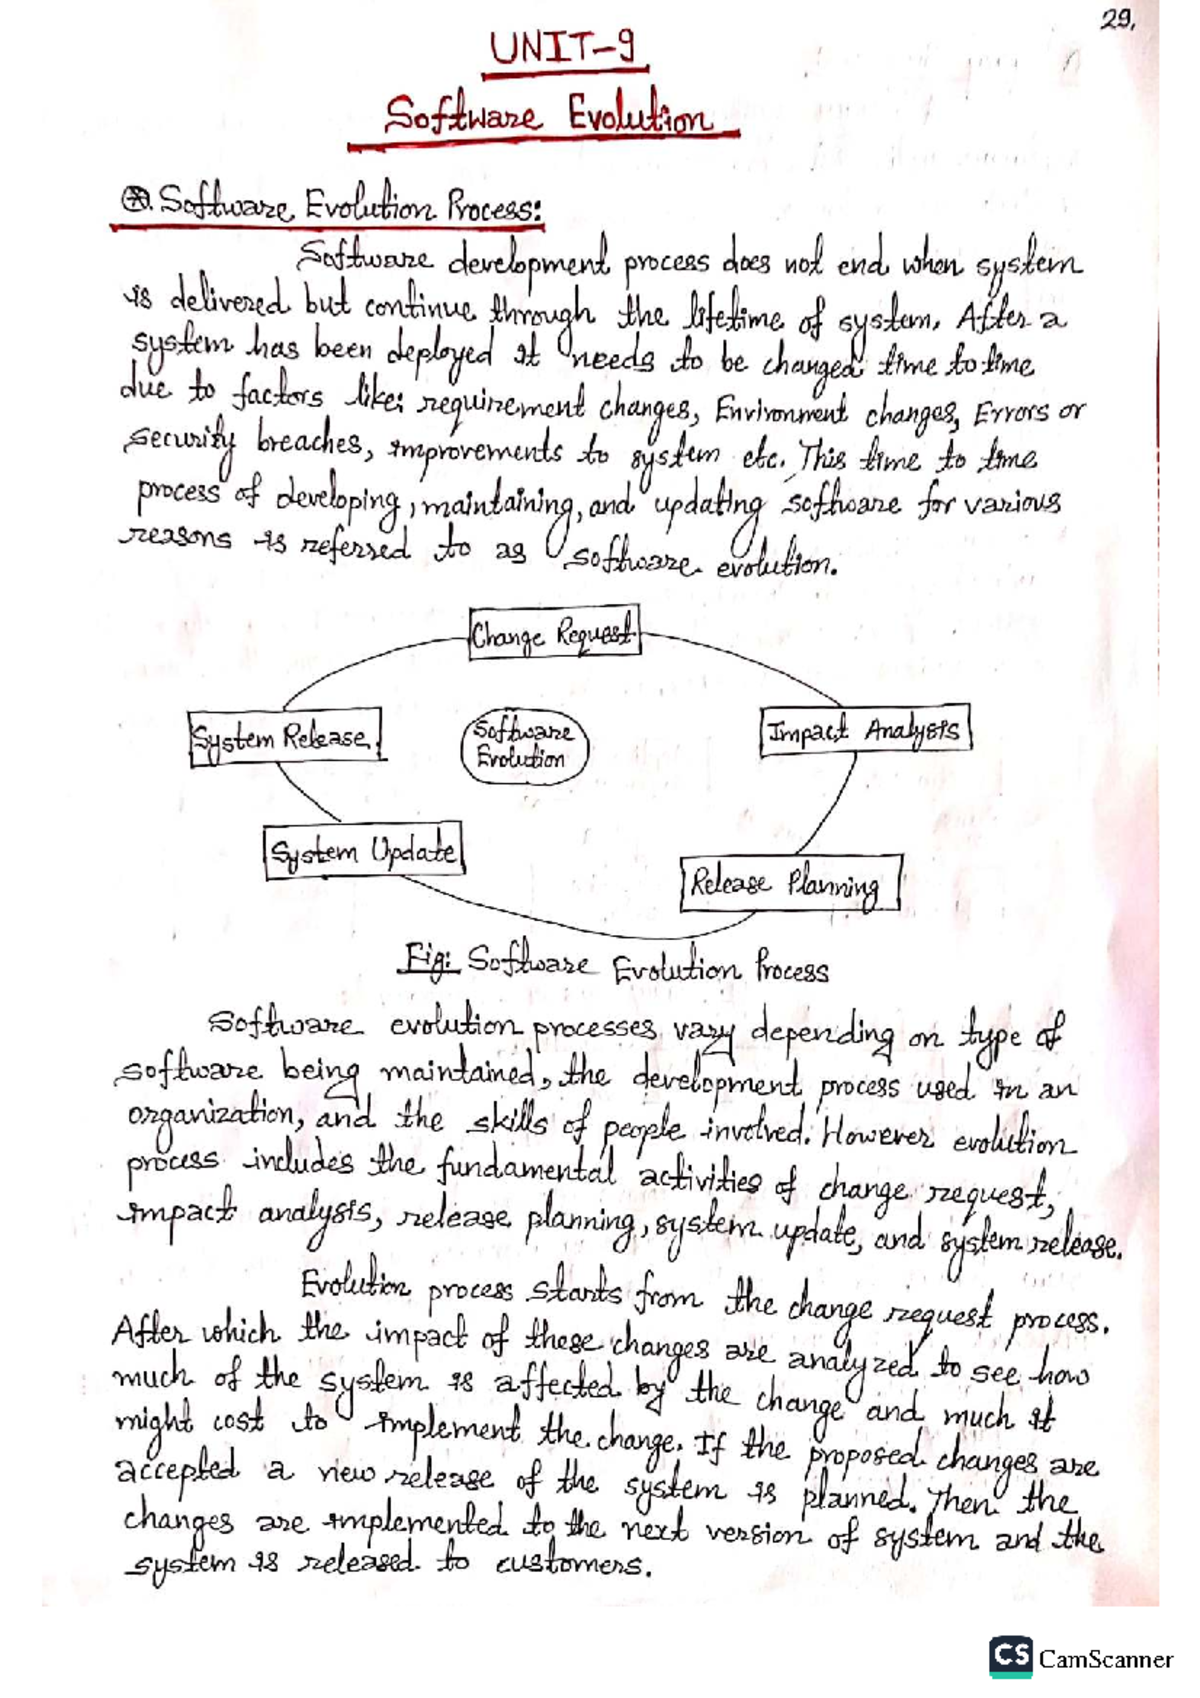 29.
UNIT-9
Software Evolution
Software Evolution Process:
Software development process does not end when system
is delivered but continue through the lifetime of system. After a
system has been deployed it needs to be changed time to time
due to factors like: requirement changes, Environment changes, Errors or
security breaches, improvements to system etc. This time to time
process of developing, maintaining, and updating software for various
reasons is referred to as software evolution.
Change Request
System Release
Software
Evolution
Impact Analysis
System Update
Release Planning
Fig: Software Evolution Process
Software evolution processes vary depending on type of
software being maintained, the development process used in an
organization, and the skills of people involved. However evolution
process includes the fundamental activities of change request,
impact analysis, release planning, system update, and system release.
Evolution process starts from the change request process.
After which the impact of these changes are analyzed to see how
much of the system is affected by the change and much it
might cost to implement the change. If the proposed changes are
accepted a new release of the system is planned. Then the
changes are implemented to the next version of system and the
system is released to customers.
CS CamScanner